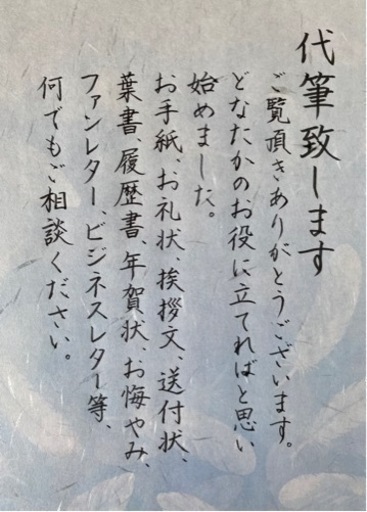 代筆致します
ご覧頂きありがとうございます。
どなたかのお役に立てればと思い
始めました。
お手紙、お礼状、挨拶文、送付状、
葉書、履歴書、年賀状、お悔やみ、
ファンレター、ビジネスレター等、
何でもご相談ください。